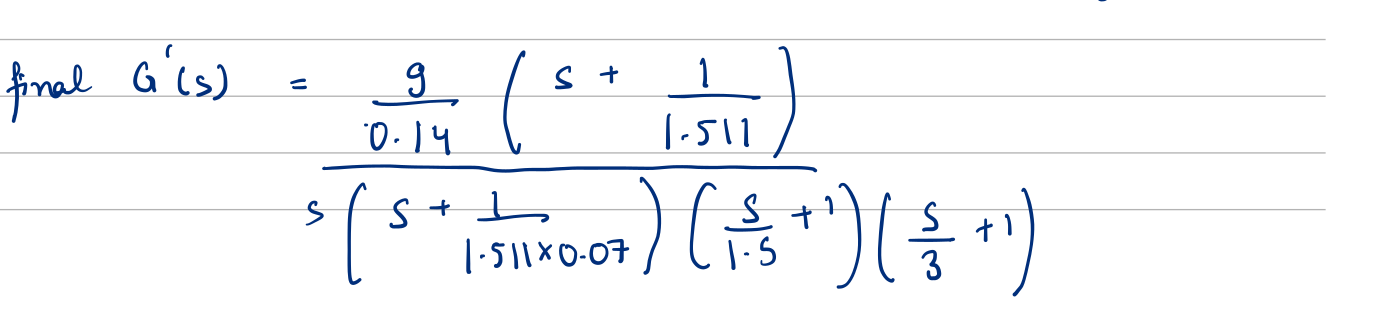 final G'(s) = \frac{\frac{9}{0.14} \left( s + \frac{1}{1.511} \right)}{s \left( s + \frac{1}{1.511 \times 0.07} \right) \left( \frac{s}{1.5} + 1 \right) \left( \frac{s}{3} + 1 \right)}